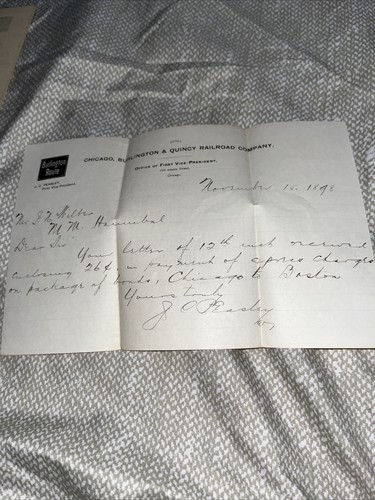 Burlington
Route
CHICAGO, BURLINGTON & QUINCY RAILROAD COMPANY.
OFFICE OF FIRST VICE-PRESIDENT,
Chicago.
First Vice-President.
November 14, 1898
Mr
Hannibal
Dear Sir
Your letter of 12th inst received
enclosing 26¢, in payment of express charges
on package of bonds, Chicago to Boston
Yours truly
J C Peasley